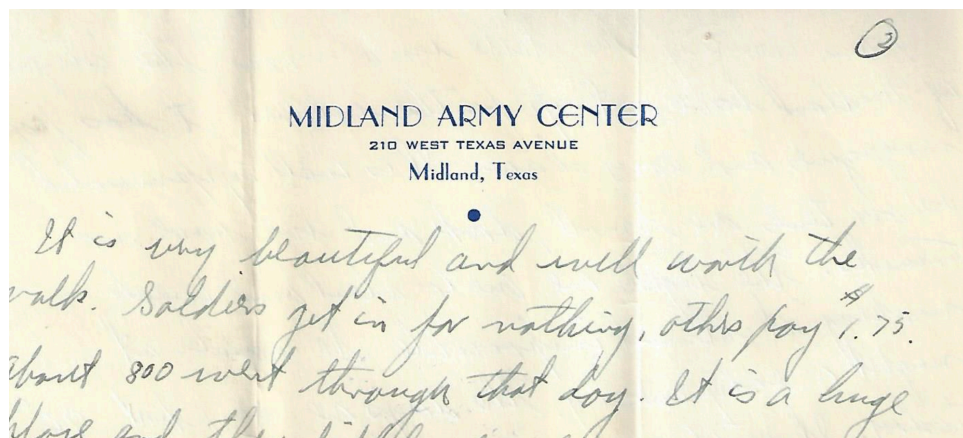 2
MIDLAND ARMY CENTER
210 WEST TEXAS AVENUE
Midland, Texas
It is very beautiful and well worth the
walk. Soldiers get in for nothing, others pay $1.75.
about 800 went through that day. It is a huge
and the